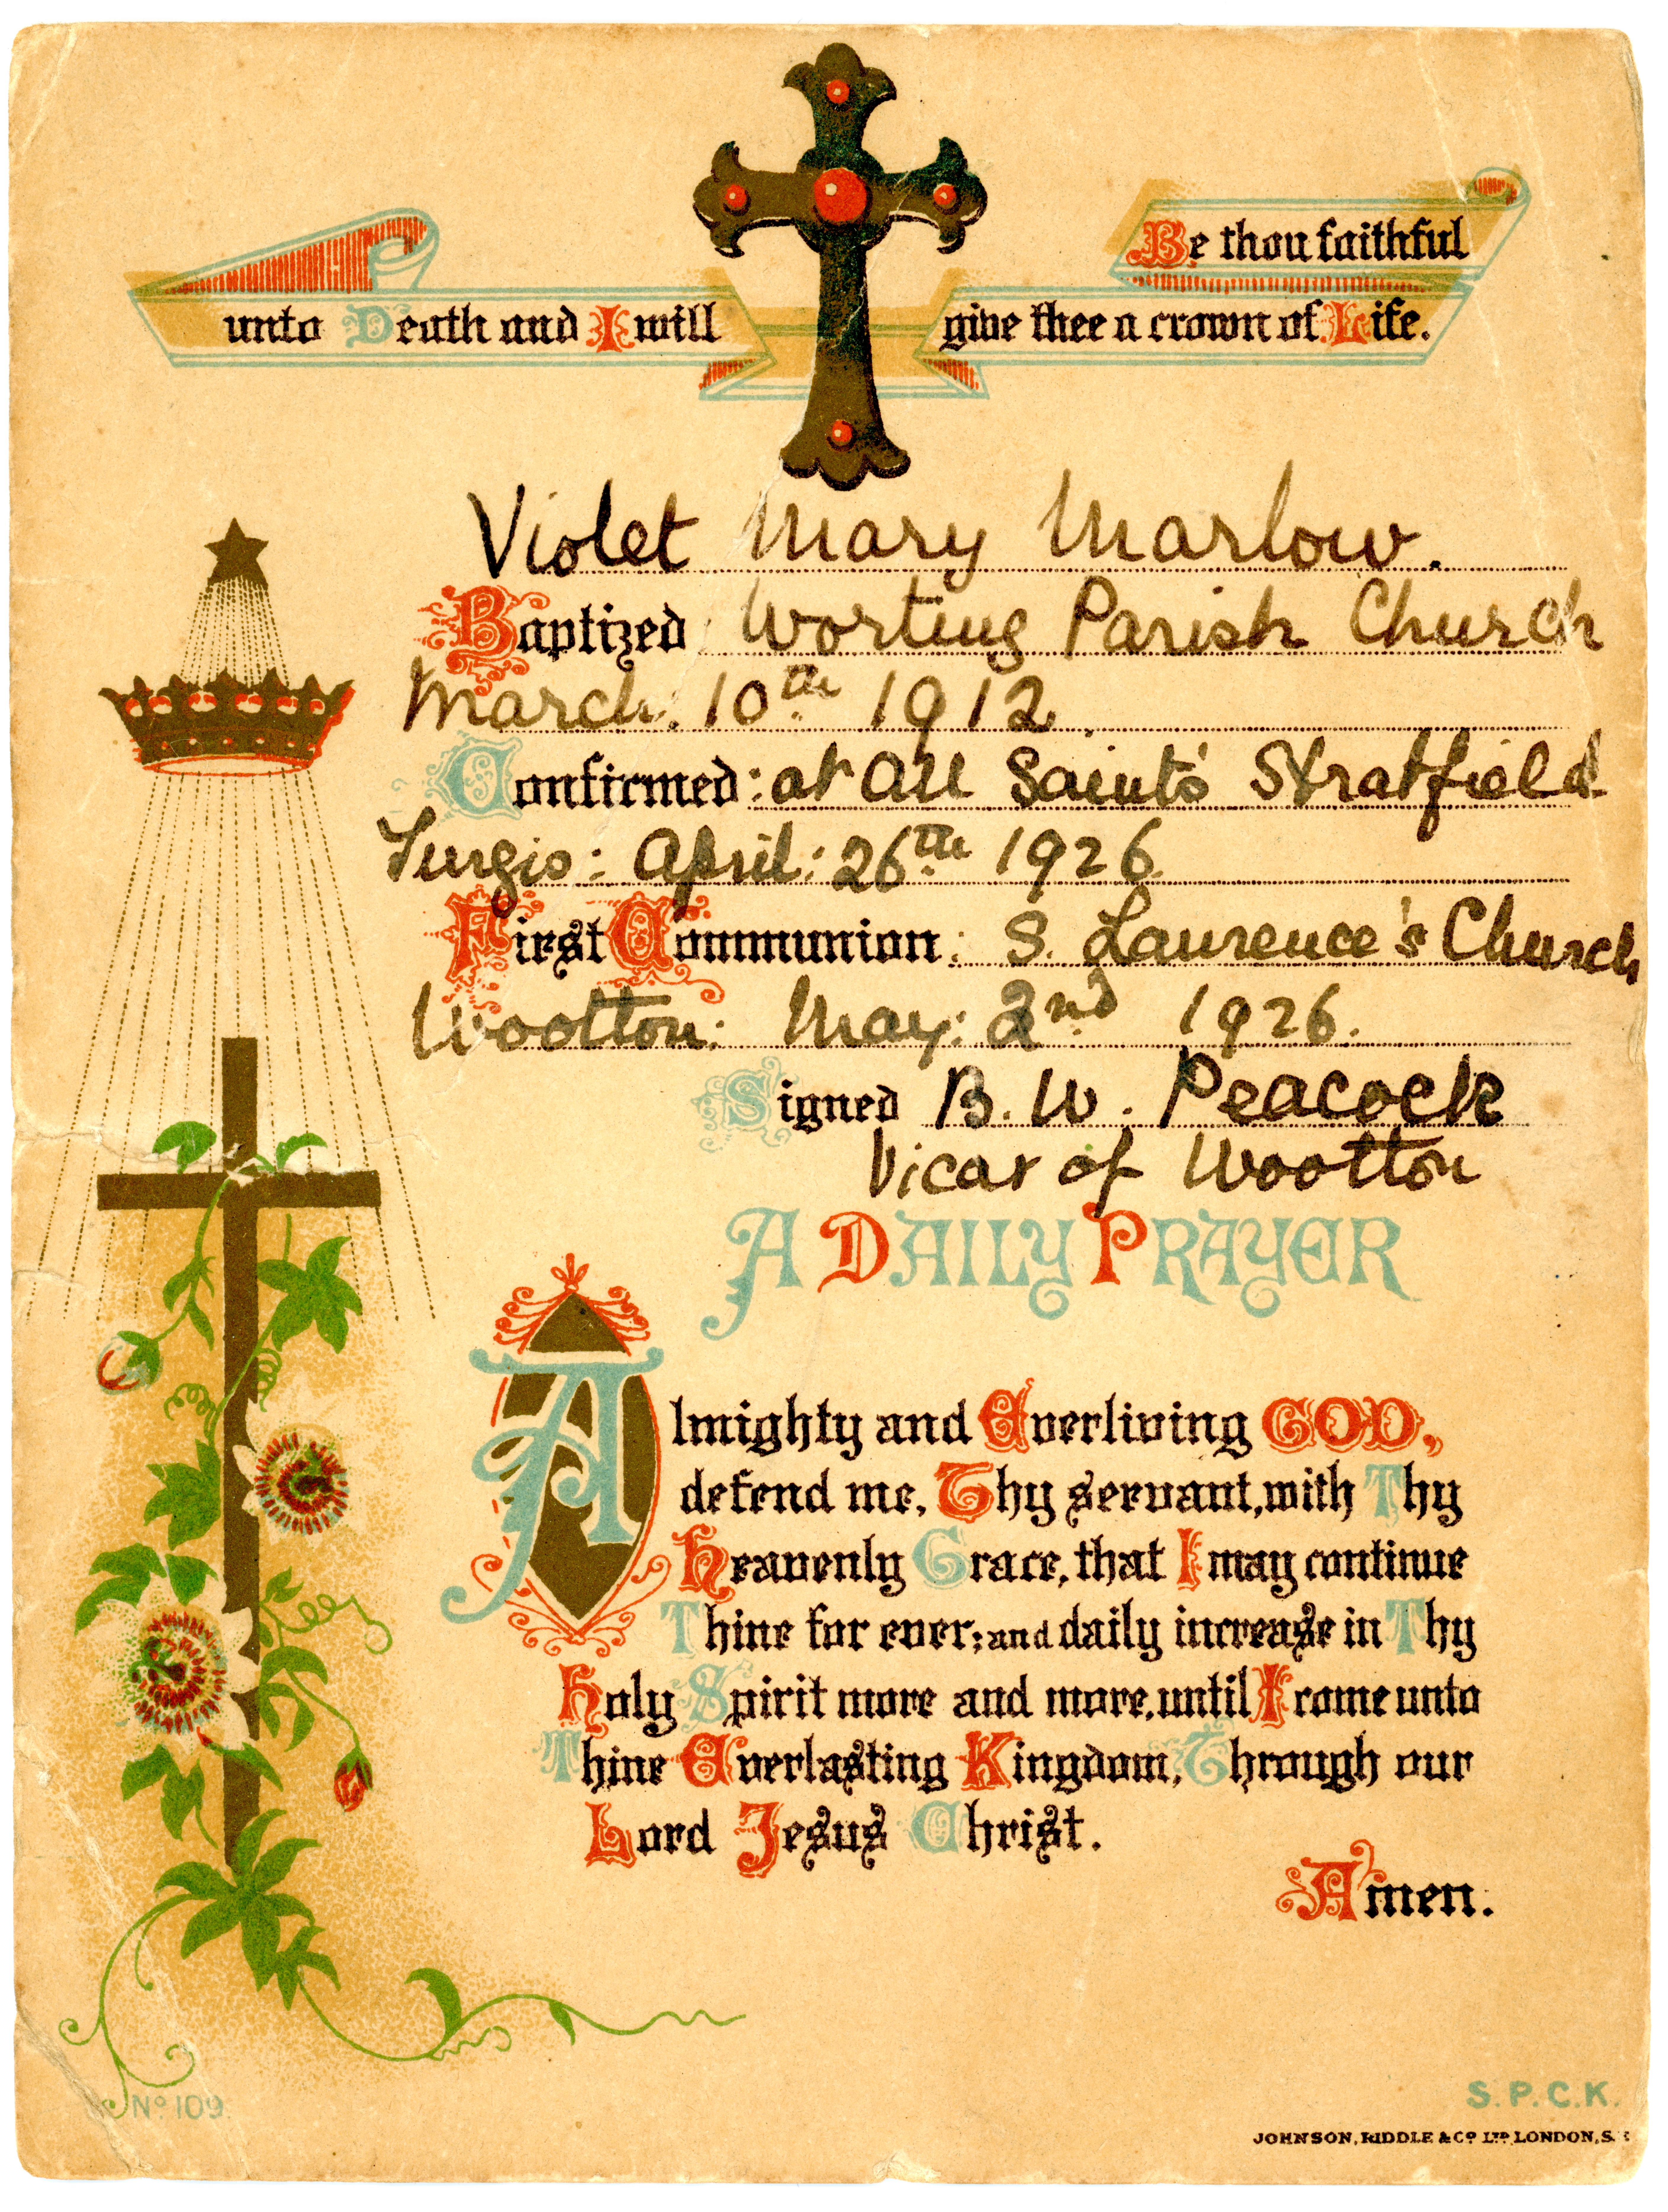 Be thou faithful
unto Death and I will give thee a crown of Life.
Violet Mary Marlow.
Baptized Worting Parish Church
March. 10th 1912
Confirmed: at All Saints' Stratfield
Turgis: April: 26th 1926.
First Communion: S. Laurence's Church
Wootton: May: 2nd 1926.
Signed B. W. Peacock
Vicar of Wootton
A DAILY PRAYER
Almighty and Everliving GOD,
defend me, Thy servant, with Thy
Heavenly Grace, that I may continue
Thine for ever; and daily increase in Thy
Holy Spirit more and more, until I come unto
Thine Everlasting Kingdom, Through our
Lord Jesus Christ.
Amen.
No 109.
S.P.C.K.
JOHNSON, RIDDLE & Co LTD, LONDON, S.